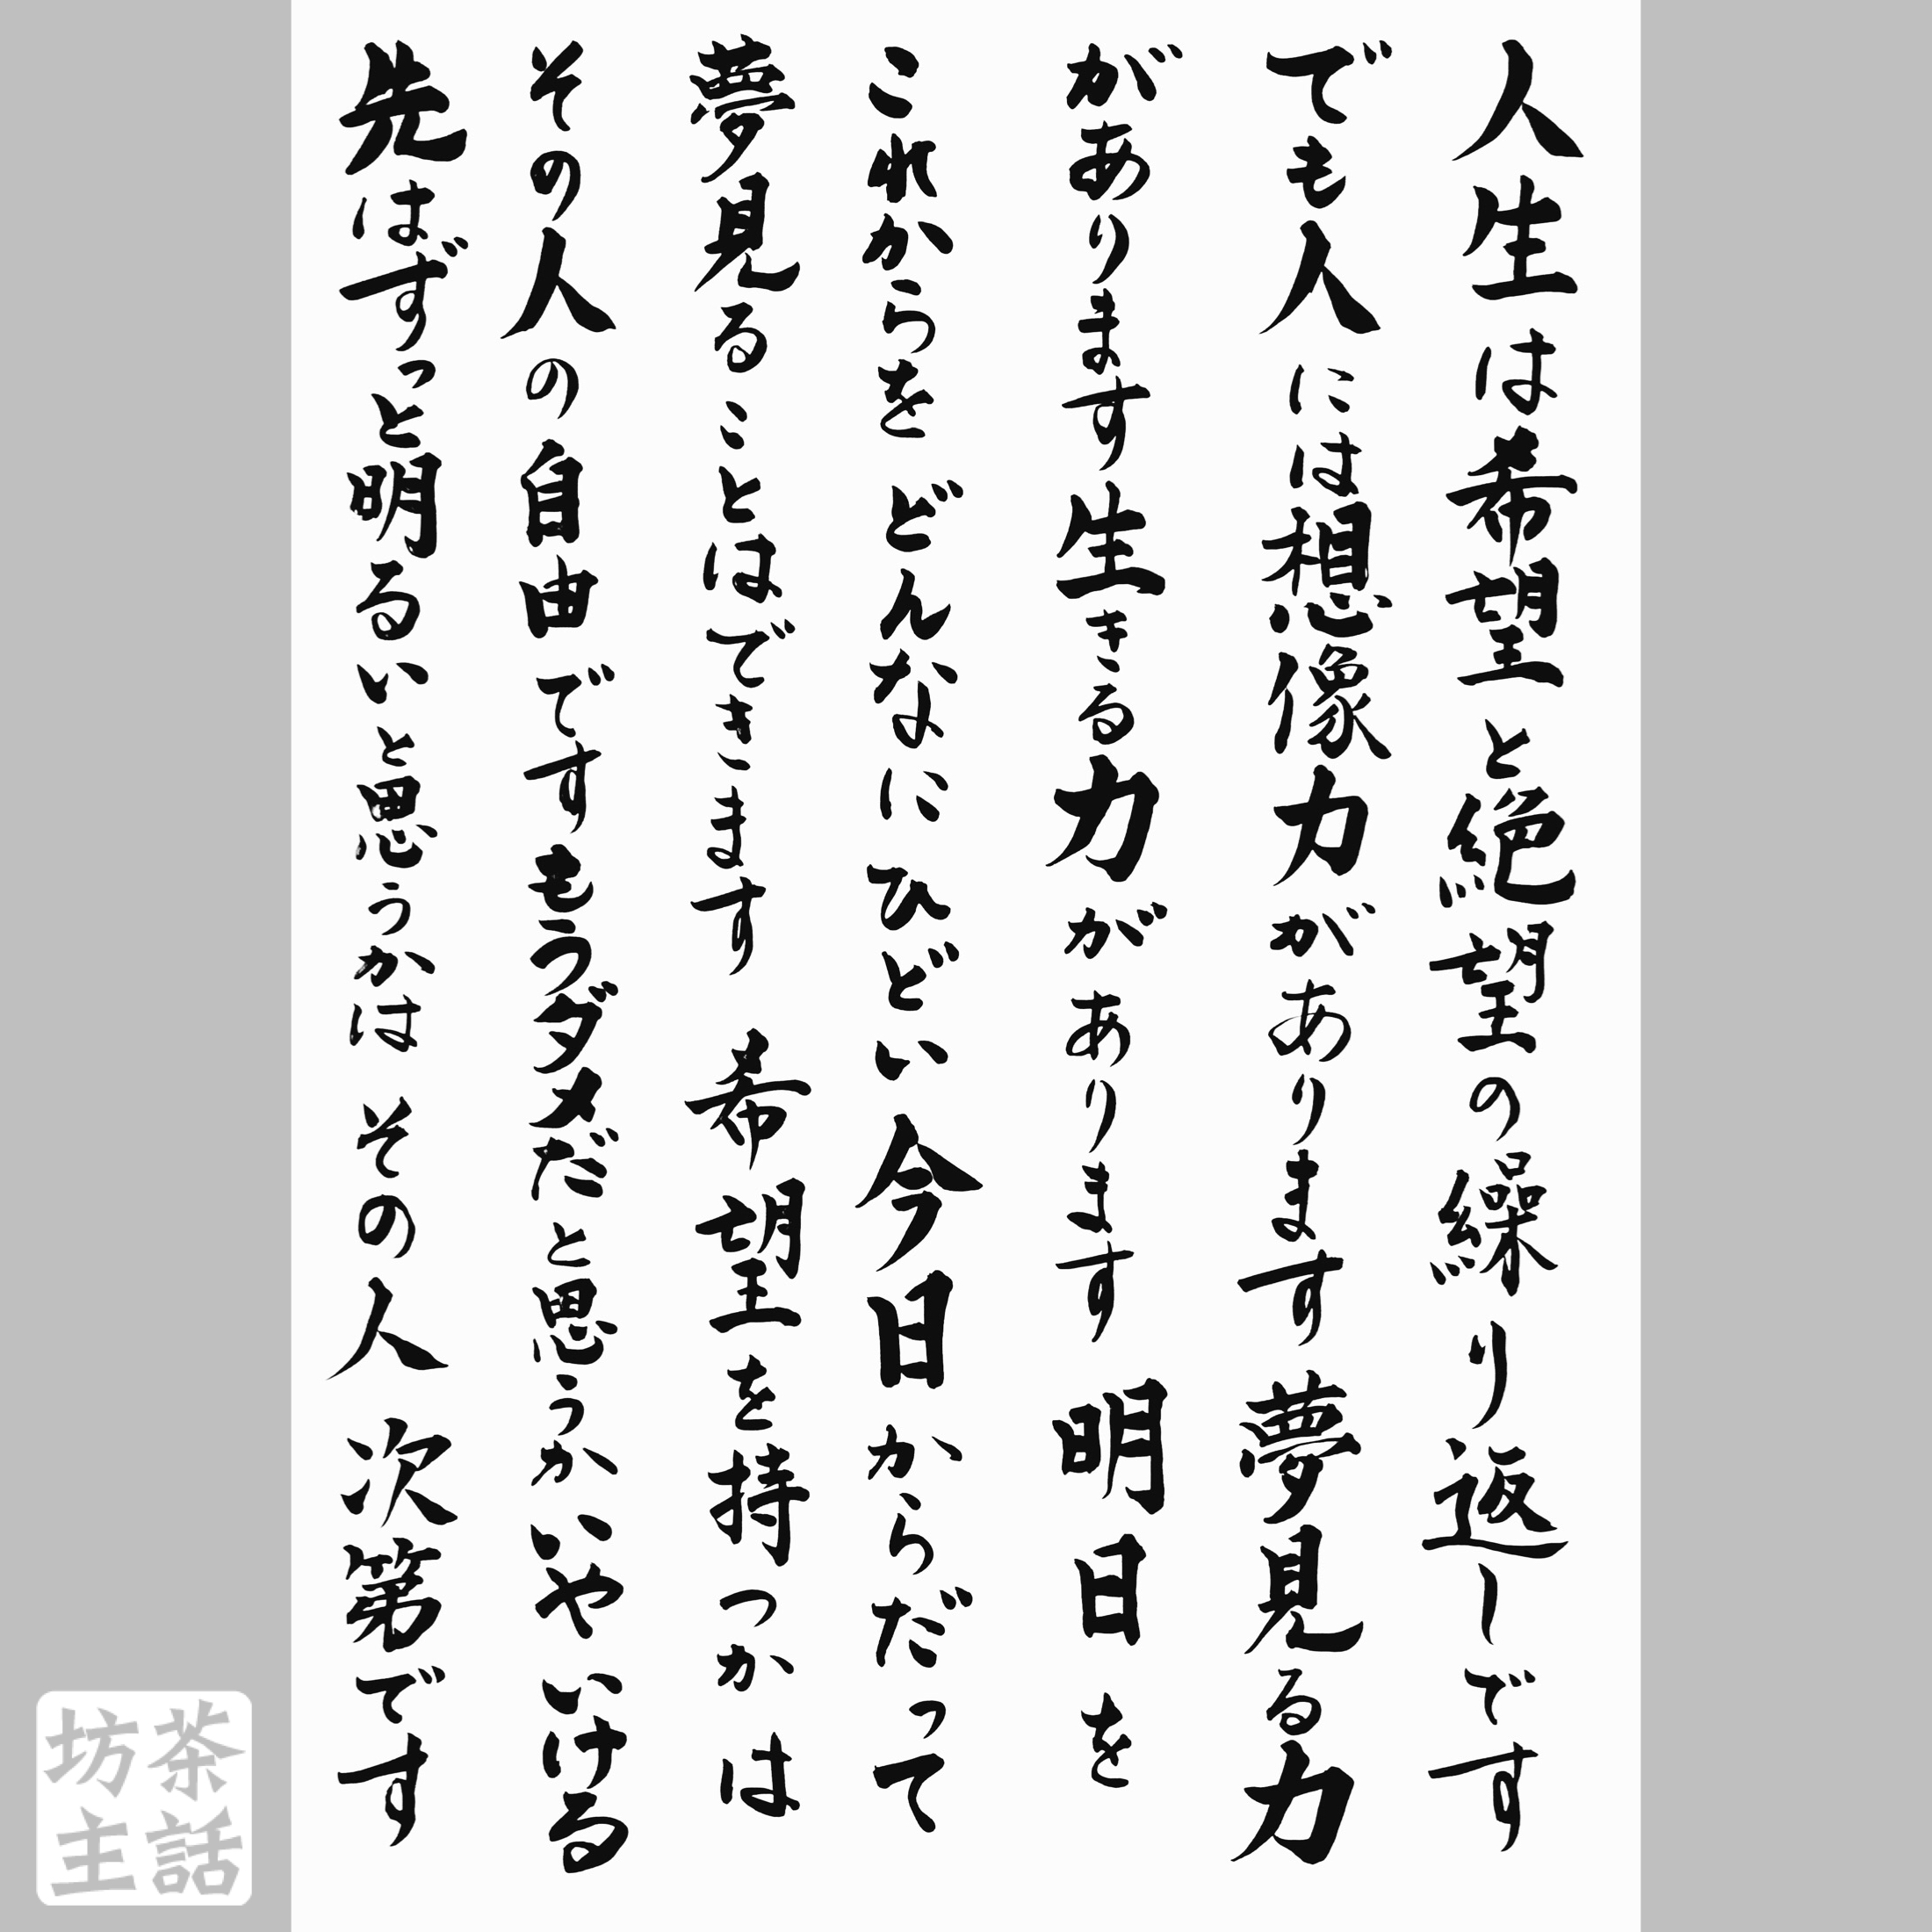 人生は希望と絶望の繰り返しです
でも人には想像力があります夢見る力
があります生きる力があります明日を
これからをどんなにひどい今日からだって
夢見ることはできます希望を持つかは
その人の自由ですもうダメだと思うかいやいける
先はずっと明るいと思うかはその人次第です
茶話
坊主